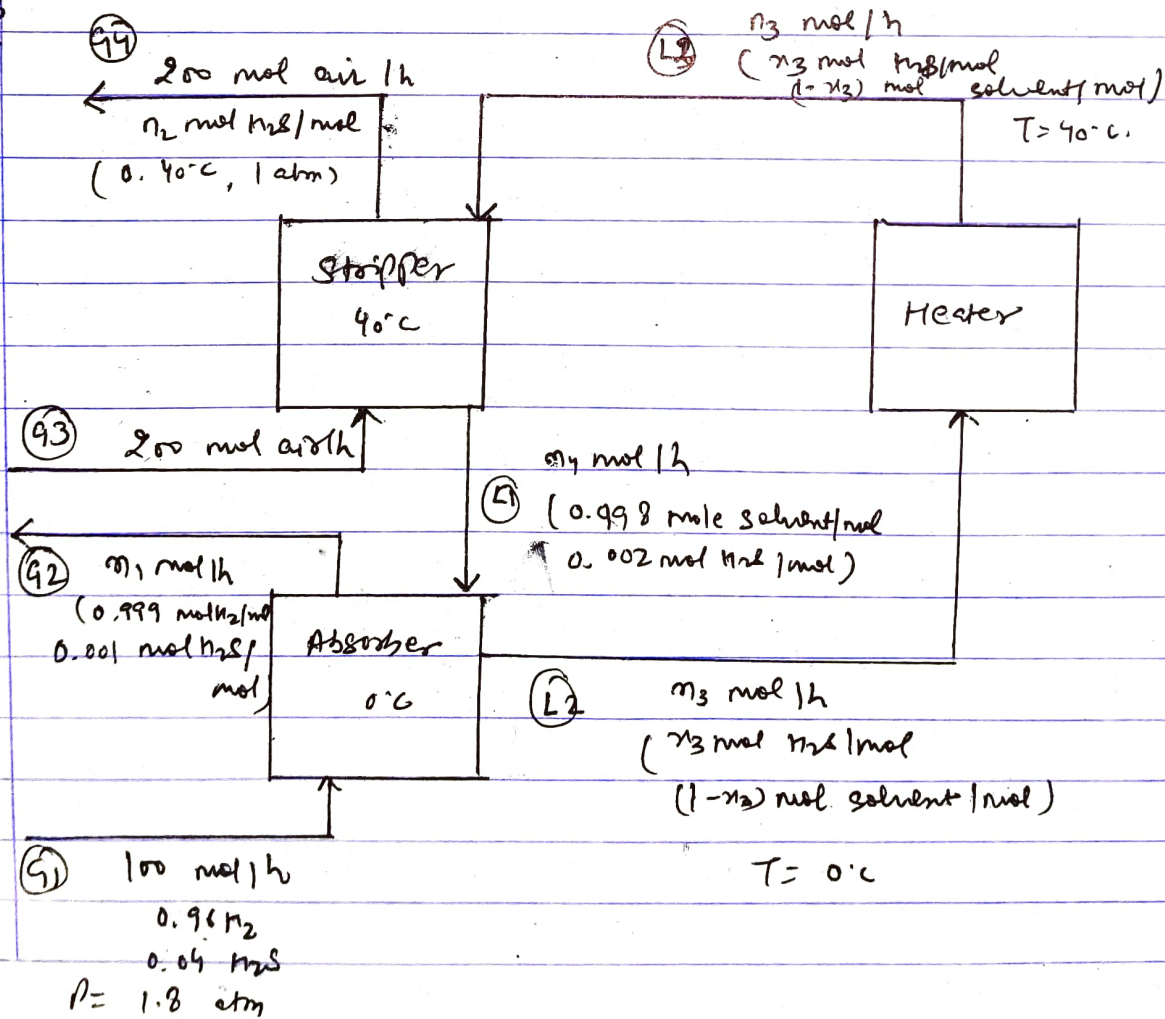 G4
200 mol air /h
n2 mol H2S/mol
( 0. 40°C, 1 atm)
L2
n3 mol /h
( x3 mol H2S/mol
(1-x3) mol solvent/mol)
T= 40°C.
Stripper
40°C
Heater
G3
200 mol air/h
n4 mol /h
L1
( 0.998 mole solvent/mol
0.002 mol H2S /mol)
G2
n1 mol /h
(0.999 mol H2/mol
0.001 mol H2S/
mol)
Absorber
0°C
L2
n3 mol /h
( x3 mol H2S /mol
(1-x3) mol solvent /mol)
T= 0°C
G1
100 mol /h
0.96 H2
0.04 H2S
P= 1.8 atm